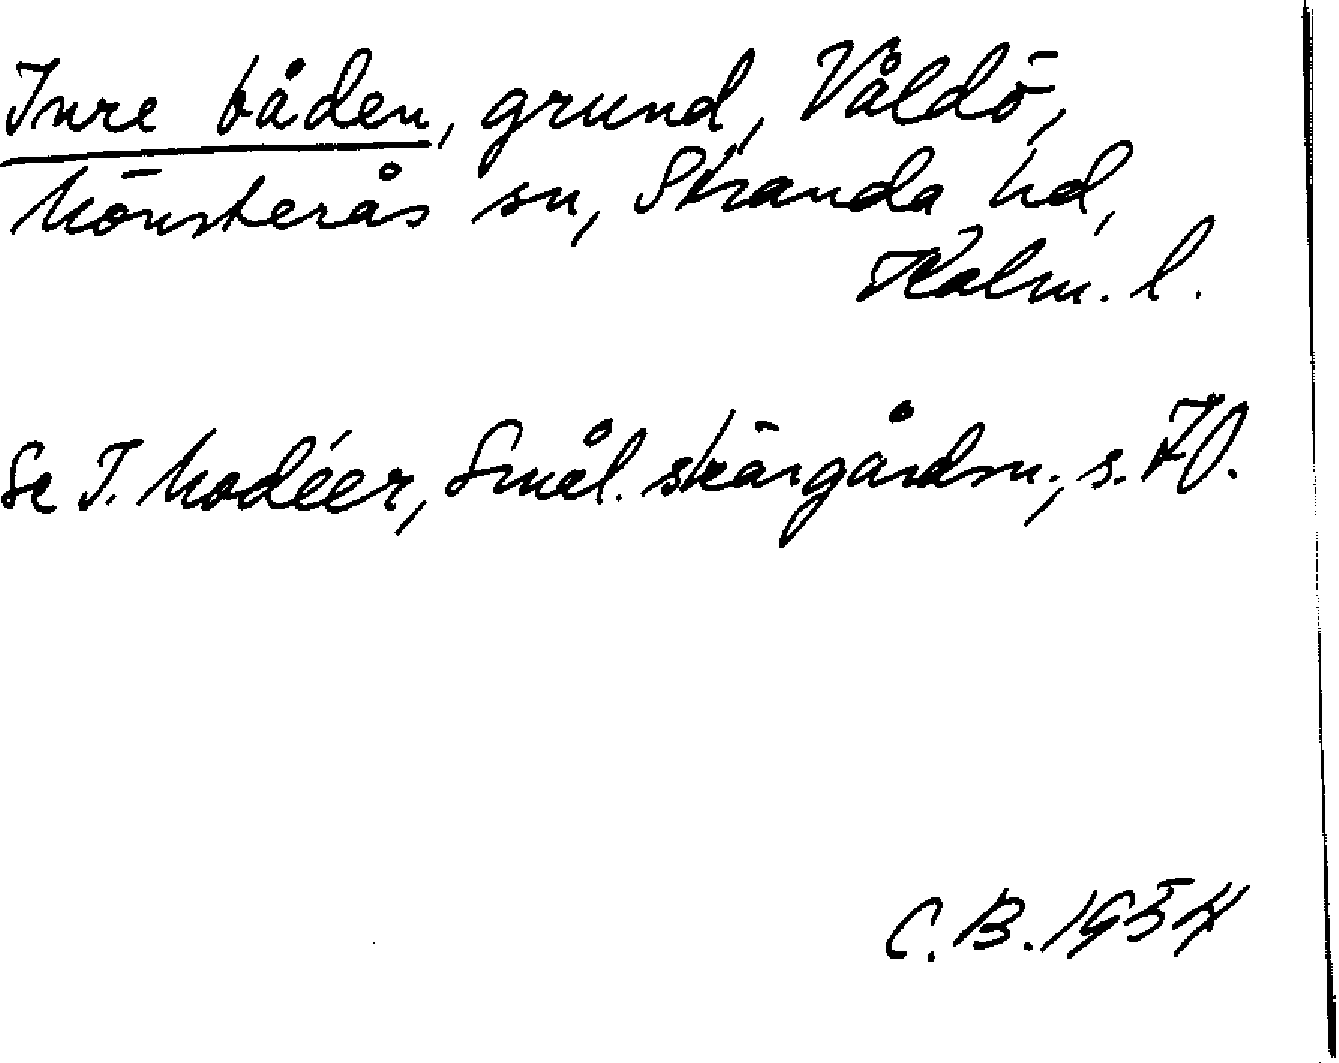 Inre båden, grund, Våldö,
Mönsterås sn, Stranda hd,
Kalm. l.
Se I. Modéer, Smål. skärgårdsn., s. 70.
C. B. 1954